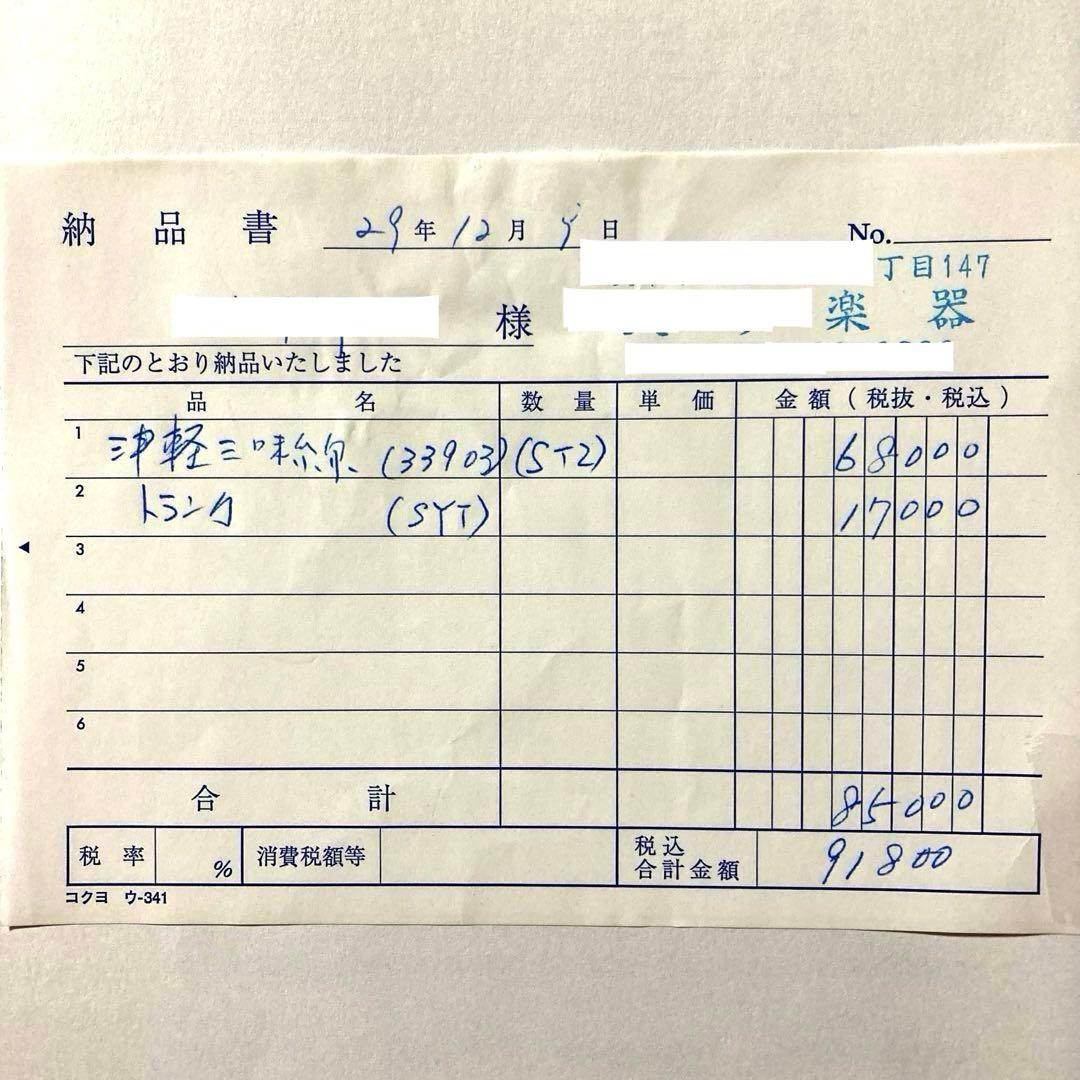 納品書 29年12月5日 No.
丁目147
様 楽器
下記のとおり納品いたしました
品名 数量 単価 金額(税抜・税込)
1 津軽三味線 (33903) (ST2) 68000
2 トランク (SYT) 17000
3
4
5
6
合計 85000
税率 % 消費税額等 税込合計金額 91800
コクヨ ウ-341